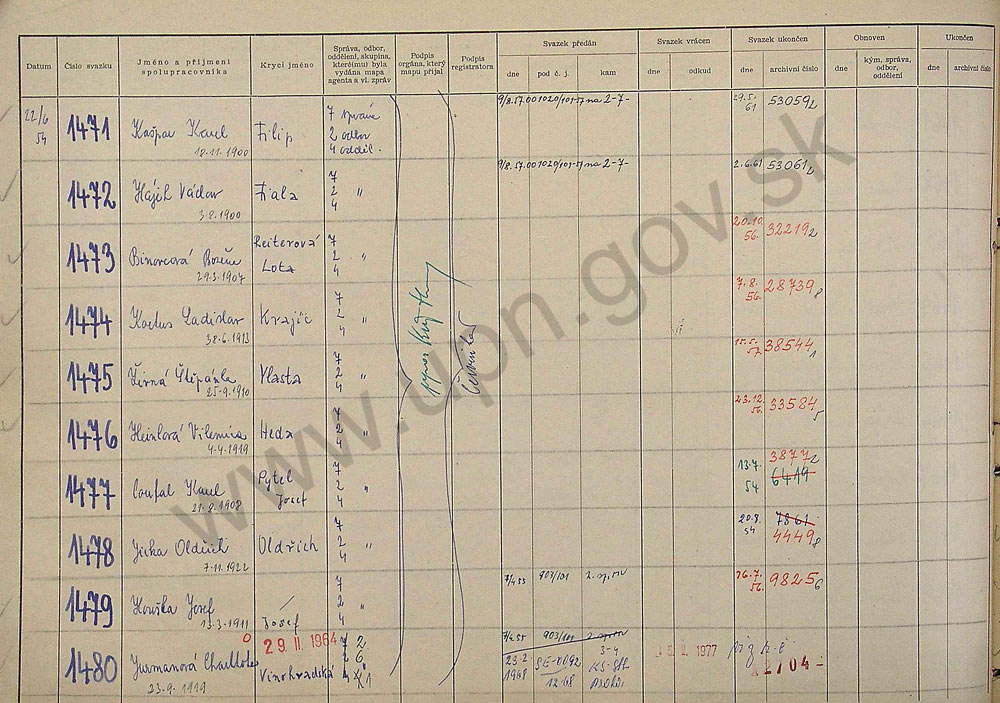 Datum
Číslo svazku
Jméno a příjmení
spolupracovníka
Krycí jméno
Správa, odbor,
oddělení, skupina,
které(mu) byla
vydána mapa
agenta a vl. zpráv
Podpis
orgána, který
mapu přijal
Podpis
registratora
Svazek předán
dne
pod č. j.
kam
Svazek vrácen
dne
odkud
Svazek ukončen
dne
archivní číslo
Obnoven
dne
kým, správa,
odbor,
oddělení
Ukončen
dne
archivní číslo
22/6
54
1471
Kašpar Karel
18.11.1900
Filip
7 správa
2 odbor
4 odděl.
9/8.57.
na 2-7-
29.5.
61
53059 2
1472
Hájek Václav
3.8.1900
Fiala
7
2 "
4
9/8.57.
na 2-7-
2.6.61
53061 2
1473
29.3.1907
Reiterová
Lota
7
2 "
4
20.10.
56.
32219 2
1474
Ladislav
Krajíc
7
2 "
4
7.8.
56.
28739 8
1475
Štěpánka
25.9.1910
Vlasta
7
2 "
4
15.5.
57.
38544 1
1476
Heinlová Vilemína
4.4.1919
Heda
7
2 "
4
23.12.
56.
33584 5
1477
Coufal Karel
21.8.1908
Pytel
Josef
7
2 "
4
13.7.
54
3877 2
6419
1478
Jirka Oldřich
7.11.1922
Oldřich
7
2 "
4
20.8.
54
7861
4449 8
1479
Houška Josef
13.3.1911
Josef
7
2 "
4
7/4 55
903/101
2. sp. MV
9825 6
1480
Jurmanová Charlotta
23.9.1919
29. II. 1964
Vinohradská
7 2
2 6
4 1
7/4 55
903/101
2. sp. MV
23.2
1968
SE-0092
12-68
3-4
1977
1704-
www.upn.gov.sk